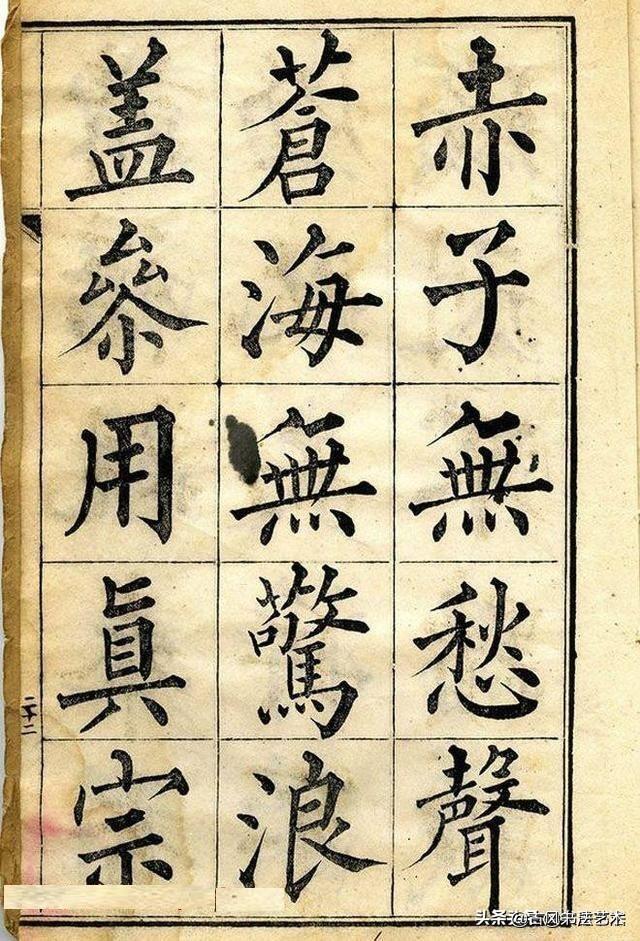 赤子無愁聲
蒼海無驚浪
盖叅用眞宗
二十二
头条@古风书法艺术